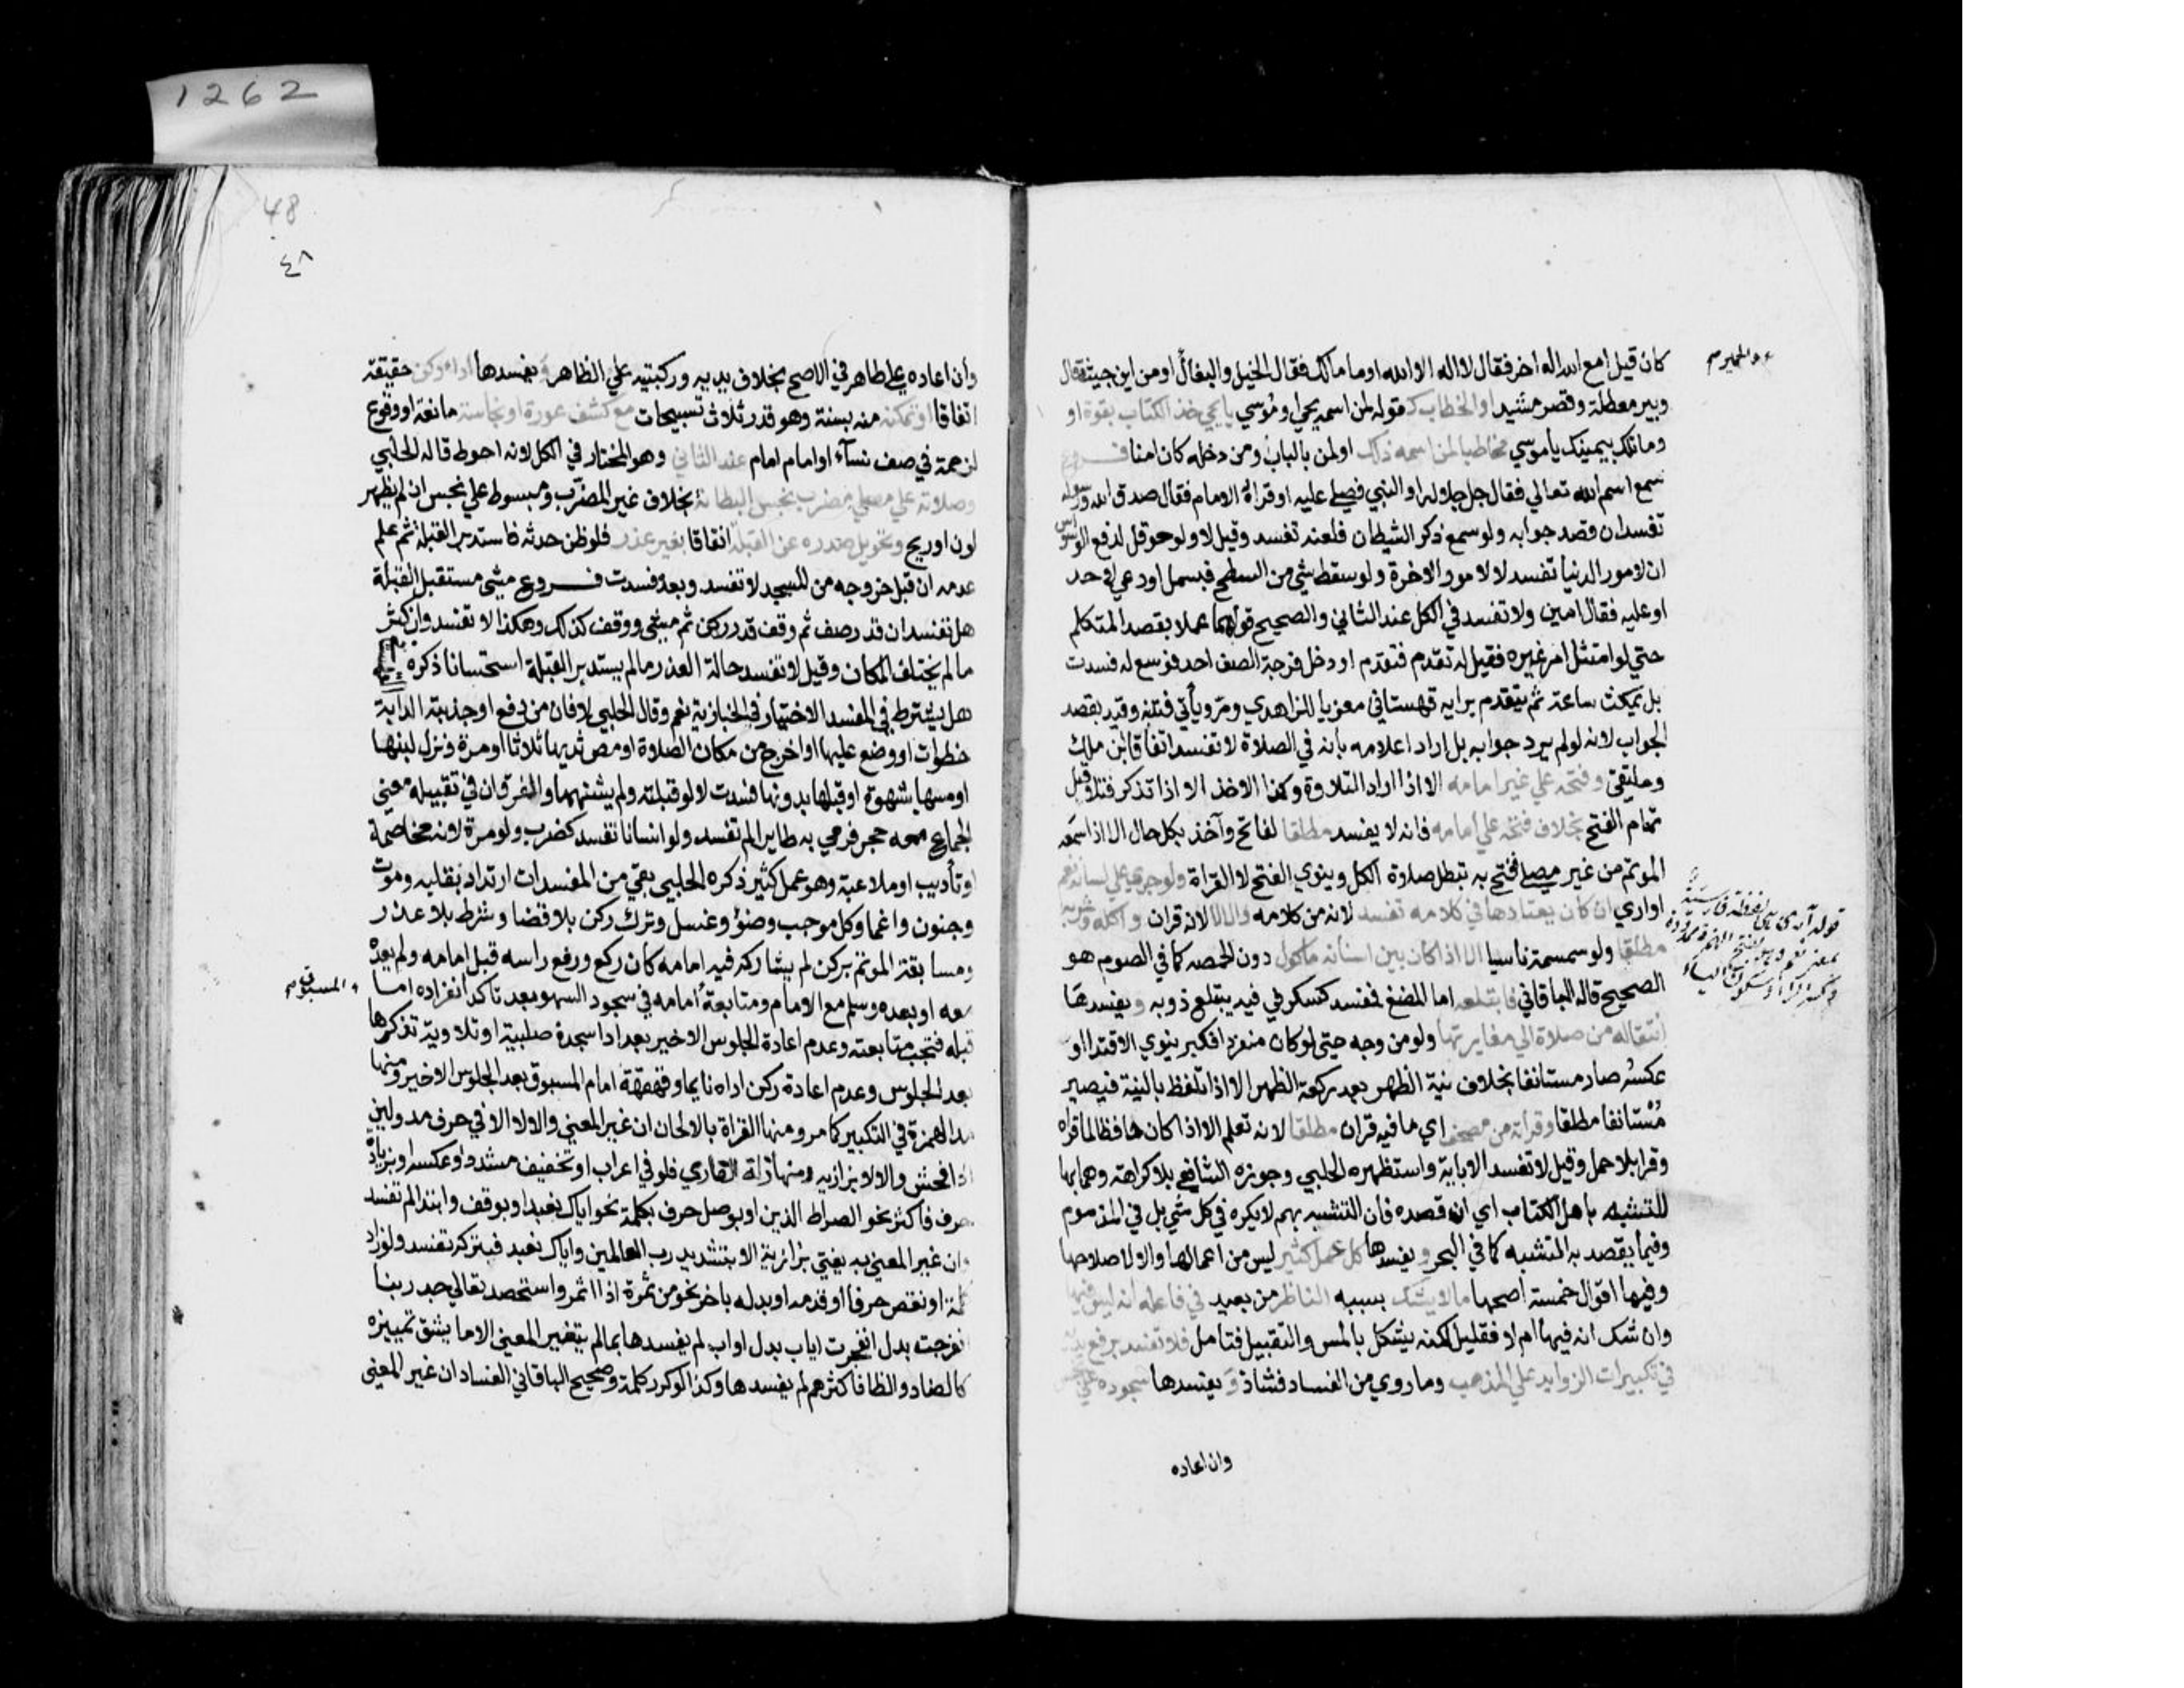 1262
كان قيل امع الله اله اخر فقال لا اله الا الله او ما مالك فقال الخيل والبغال او من اين جيت فقال
والحمير صح
وبير معطلة وقصر مشيد او الخطاب كقوله لمن اسمه يحيى او موسي يا يحيي خذ الكتاب بقوة او
وما تلك بيمينك يا موسي مخاطبا لمن اسمه ذلك او لمن بالباب ومن دخله كان امنا فروع
سمع اسم الله تعالي فقال جل جلاله او النبي فصلي عليه او قراة الامام فقال صدق الله ورسوله
تفسد ان قصد جوابه ولو سمع ذكر الشيطان فلعنه تفسد وقيل لا ولو حوقل لدفع الوسواس
ان لامور الدنيا تفسد لا لامور الاخرة ولو سقط شي من السطح فبسمل او دعي لاحد
او عليه فقال امين ولا تفسد في الكل عند الثاني والصحيح قولهما عملا بقصد المتكلم
حتي لو امتثل امر غيره فقيل له تقدم فتقدم او دخل فرجة الصف احد فوسع له فسدت
بل يمكث ساعة ثم يتقدم برايه قهستاني معزيا للزاهدي ومر ويأتي فتنبه وقيد بقصد
الجواب لانه لو لم يرد جوابه بل اراد اعلامه بانه في الصلاة لا تفسد اتفاقا ابن ملك
وملتقي وفتحه علي غير امامه الا اذا اراد التلاوة وكذا الاخذ الا اذا تذكر فتلا قبل
تمام الفتح بخلاف فتحه علي امامه فانه لا يفسد مطلقا لفاتح وآخذ بكل حال الا اذا سمعه
الموتم من غير مصلي ففتح به تبطل صلاة الكل وينوي الفتح لا القراة ولو جري علي لسانه نعم
او اري ان كان يعتادها في كلامه تفسد لانه من كلامه والا لا لانه قران واكله وشربه
مطلقا ولو سمسمة ناسيا الا اذا كان بين اسنانه ماكول دون الحمصه كما في الصوم هو
الصحيح قاله الباقاني فابتلعه اما المضغ فمفسد كسكر في فيه يبتلع ذوبه ويفسدها
انتقاله من صلاة الي مغايرتها ولو من وجه حتي لو كان منفردا فكبر ينوي الاقتدا او
عكسه صار مستانفا بخلاف نية الظهر بعد ركعة الظهر الا اذا تلفظ بالنية فيصير
مستانفا مطلقا وقراته من مصحف اي ما فيه قران مطلقا لانه تعلم الا اذا كان حافظا لما قراه
وقرا بلا حمل وقيل لا تفسد الا باية واستظهره الحلبي وجوزه الشافعي بلا كراهة وهما بها
للتشبه باهل الكتاب اي ان قصده فان التشبه بهم لا يكره في كل شي بل في المذموم
وفيما يقصد به التشبه كما في البحر ويفسدها كل عمل كثير ليس من اعمالها والا لاصلاحها
وفيها اقوال خمسة اصحها ما لا يشك بسببه الناظر من بعيد في فاعله انه ليس فيها
وان شك انه فيها ام لا فقليل لكنه يشكل بالمس والتقبيل فتامل فلا تفسد برفع يديه
في تكبيرات الزوايد علي المذهب وما روي من الفساد فشاذ ويفسدها سجوده علي نجس
وان اعاده
48
٤٨
وان اعاده علي طاهر في الاصح بخلاف يديه وركبتيه علي الظاهر ويفسدها اداء ركن حقيقة
اتفاقا او تمكنه منه بسنة وهو قدر ثلاث تسبيحات مع كشف عورة او نجاسة مانعة او وقوع
لزحمة في صف نسآء او امام امام عند الثاني وهو المختار في الكل لانه احوط قاله الحلبي
وصلاته علي مصلي مضرب نجس البطانة بخلاف غير المضرب ومبسوط علي نجس ان لم يظهر
لون او ريح وتحويل صدره عن القبلة اتفاقا بغير عذر فلو ظن حدثه فاستدبر القبلة ثم علم
عدمه ان قبل خروجه من المسجد لا تفسد وبعده فسدت فروع مشي مستقبل القبلة
هل تفسد ان قدر صف ثم وقف قدر ركن ثم مشي ووقف كذلك وهكذا لا تفسد وان كثر
ما لم يختلف المكان وقيل لا تفسد حالة العذر ما لم يستدبر القبلة استحسانا ذكره
هل يشترط في المفسد الاختيار في الخبازية نعم وقال الحلبي لا فان من دفع او جذبته الدابة
خطوات او وضع عليها او اخرج من مكان الصلاة او مص ثديها ثلاثا او مرة ونزل لبنها
او مسها بشهوة او قبلها بدونها فسدت لا لو قبلته ولم يشتهها والفرق ان في تقبيله معني
الجماع معه حجر فرمي به طايرا لم تفسد ولو انسانا تفسد كضرب ولو مرة لانه مخاصمة
او تأديب او ملاعبة وهو عمل كثير ذكره الحلبي بقي من المفسدات ارتداد بقلبه وموت
وجنون واغما وكل موجب وضؤ وغسل وترك ركن بلا قضا وشرط بلا عذر
ومسابقة الموتم بركن لم يشاركه فيه امامه كان ركع ورفع راسه قبل امامه ولم يعده
معه او بعده وسلم مع الامام ومتابعة امامه في سجود السهو بعد تاكد انفراده اما
والمسبوق صح
قبله فتجب متابعته وعدم اعادة الجلوس الاخير بعد ادا سجدة صلبية او تلاوية تذكرها
بعد الجلوس وعدم اعادة ركن اداه نايما وقهقهة امام المسبوق بعد الجلوس الاخير ومنها
مد الهمزة في التكبير كما مر ومنها القراة بالالحان ان غير المعني والا لا الا في حرف مد ولين
اذا فحش والا لا بزازيه ومنها زلة القاري فلو في اعراب او تخفيف مشدد او عكسه او بزيادة
حرف فاكثر نحو الصراط الذين او بوصل حرف بكلمة نحو اياك نعبد او بوقف وابتدا لم تفسد
وان غير المعني به يفتي بزازية الا بتشديد رب العالمين واياك نعبد فبتركه تفسد ولو زاد
كلمة او نقص حرفا او قدمه او بدله باخر نحو من ثمرة اذا اثمر واستحصد تعالي جد ربنا
انفرجت بدل انفجرت اياب بدل اواب لم يفسدها بما لم يتغير المعني الا ما يشق تمييزه
كالضاد والظا فاكثرهم لم يفسدها وكذا لو كرر كلمة وصحيح الباقاني الفساد ان غير المعني